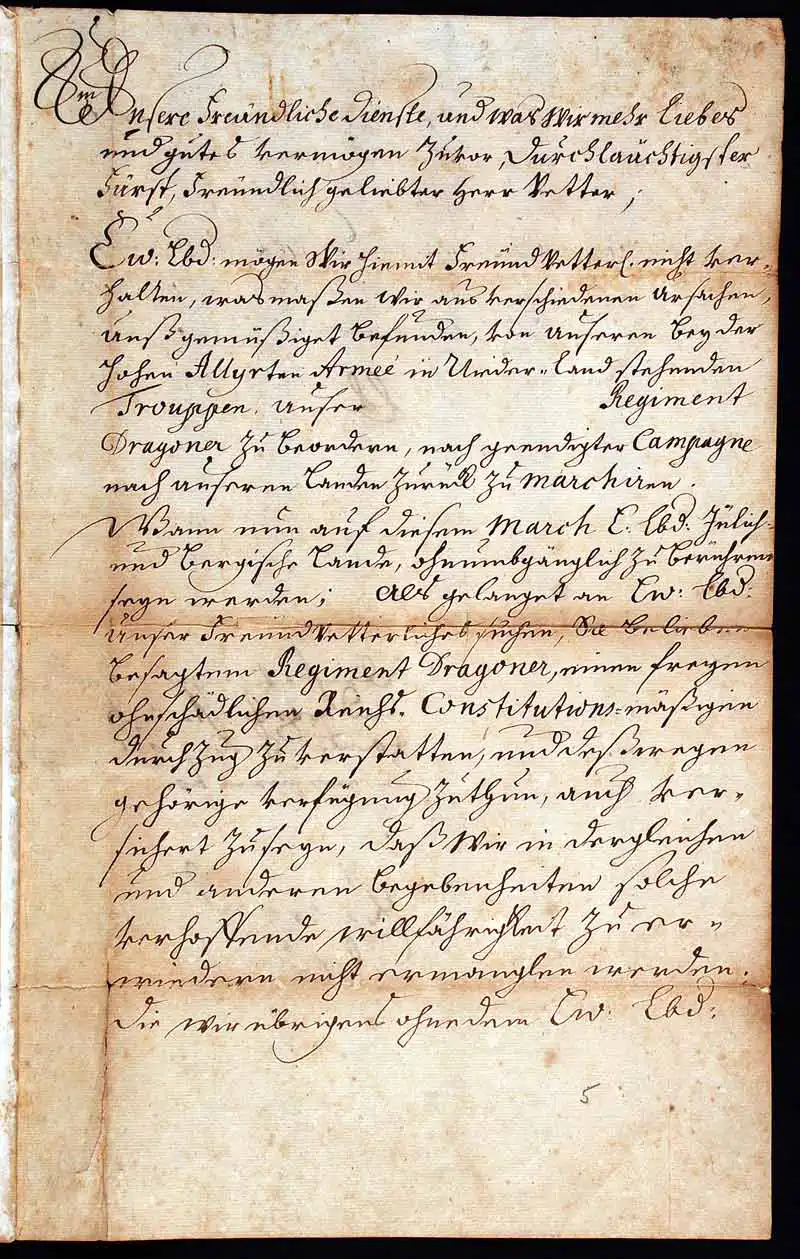 Unsere Freündliche dienste, und was Wir mehr Liebes
und gutes vermögen Zuvor, Durchlaüchtigster
Fürst, Freündlich geliebter Herr Vetter;
Ew: Lbd: mögen Wir hiemit Freünd Vetterl. nicht ver-
halten, wasmaßen wir aus verschiedenen Ursachen,
unß gemüßiget befunden, von unseren bey der
hohen Allyrten Armeé in Nider-land stehenden
Trouppen, unser Regiment
Dragoner zu beordern, nach geendigter Campagne
nach unseren Landen zurück zu marchiren.
Wann nun auf diesem March E. Lbd: Jülich-
und Bergische Lande, ohnumbgänglich zu berühren
seyn werden; Als gelanget an Ew: Lbd:
unser Freündvetterliches suchen, Sie belieben
besagtem Regiment Dragoner, einen freyen
ohnschädlichen Reichs-Constitutions-mäßigen
durchzug zu verstatten, und deßwegen
gehörige verfügung zuthun, auch ver-
sichert zu seyn, daß Wir in dergleichen
und anderen begebenheiten solche
verhoffende willfährigkeit zu er-
wiedern nicht ermanglen werden.
die wir übrigens ohnedem Ew. Lbd:
5